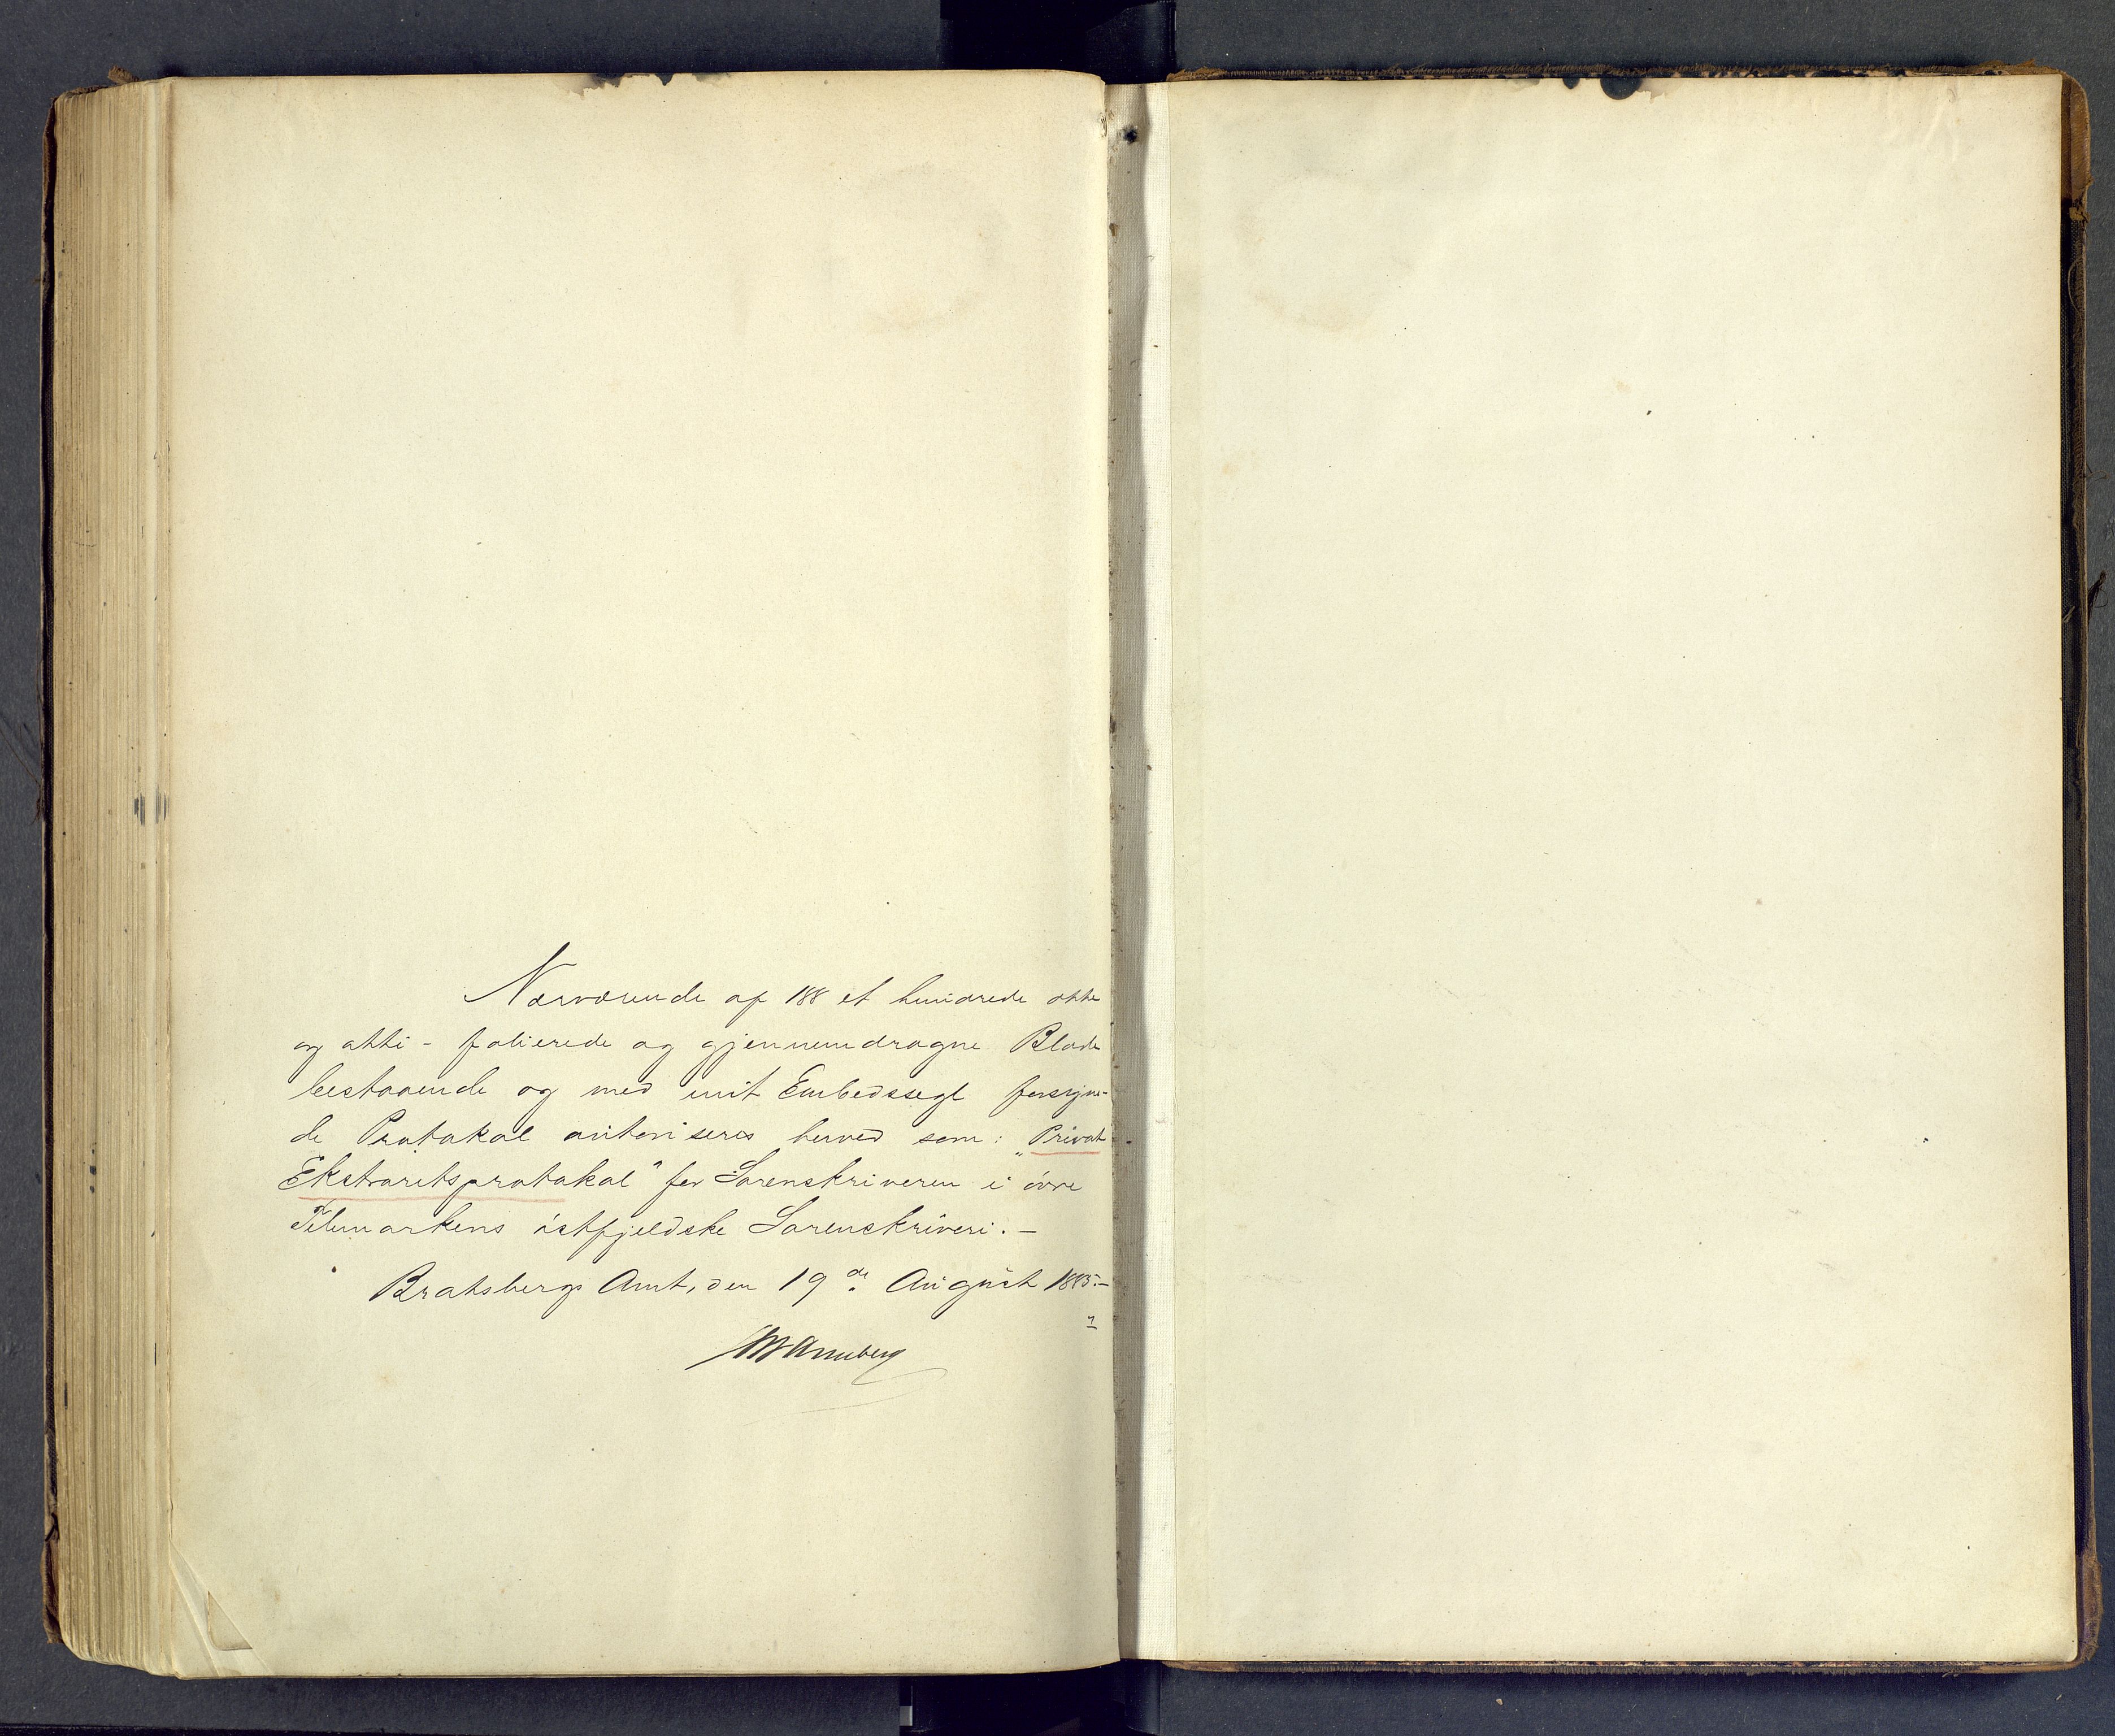 Nærværende af 188 et hundrede otte
og otti - folierede og gjennemdragne Blade
bestaaende og med mit Embedssegl forsyne-
de Protokol autoriseres herved som: „Privat-
Ekstraretsprotokol" for Sorenskriveren i øvre
Telemarkens østfjeldske Sorenskriveri. —
Bratsberg Amt, den 19de August 1885. —